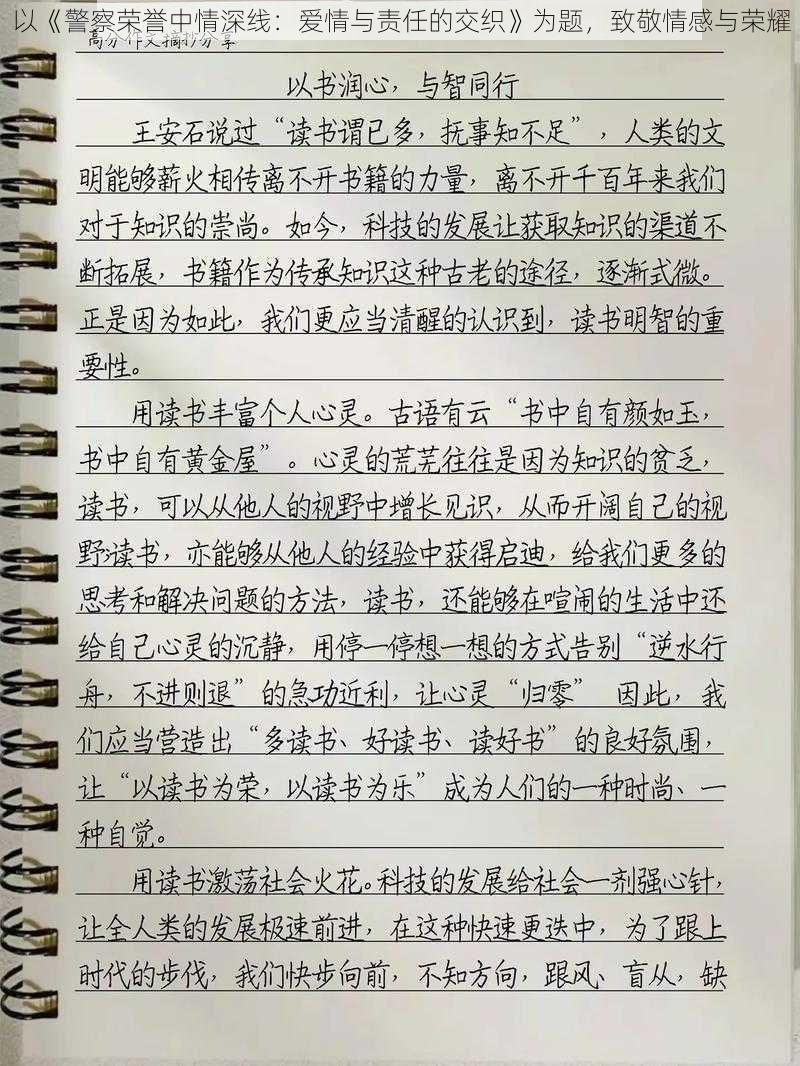 以《警察荣誉中情深线：爱情与责任的交织》为题，致敬情感与荣耀
高分作文摘抄分享
以书润心，与智同行
王安石说过“读书谓已多，抚事知不足”，人类的文
明能够薪火相传离不开书籍的力量，离不开千百年来我们
对于知识的崇尚。如今，科技的发展让获取知识的渠道不
断拓展，书籍作为传承知识这种古老的途径，逐渐式微。
正是因为如此，我们更应当清醒的认识到，读书明智的重
要性。
用读书丰富个人心灵。古语有云“书中自有颜如玉，
书中自有黄金屋”。心灵的荒芜往往是因为知识的贫乏，
读书，可以从他人的视野中增长见识，从而开阔自己的视
野;读书，亦能够从他人的经验中获得启迪，给我们更多的
思考和解决问题的方法，读书，还能够在喧闹的生活中还
给自己心灵的沉静，用停一停想一想的方式告别“逆水行
舟，不进则退”的急功近利，让心灵“归零” 因此，我
们应当营造出“多读书、好读书、读好书”的良好氛围，
让“以读书为荣，以读书为乐”成为人们的一种时尚、一
种自觉。
用读书激荡社会火花。科技的发展给社会一剂强心针，
让全人类的发展极速前进，在这种快速更迭中，为了跟上
时代的步伐，我们快步向前，不知方向，跟风、盲从，缺